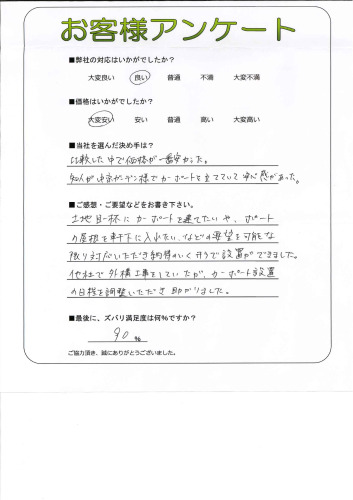 お客様アンケート
■弊社の対応はいかがでしたか？
大変良い 良い 普通 不満 大変不満
■価格はいかがでしたか？
大変安い 安い 普通 高い 大変高い
■当社を選んだ決め手は？
比較した中で価格が一番安かった。
知人が東京ガーデン様でカーポートを立てていて安心感があった。
■ご感想・ご要望などをお書き下さい。
土地目一杯にカーポートを建てたいや、ポート
の屋根を軒下に入れたい、などの要望を可能な
限り対応いただき納得のいく形で設置ができました。
他社で外構工事をしていたが、カーポート設置
の日程を調整いただき助かりました。
■最後に、ズバリ満足度は何%ですか？
90 %
ご協力頂き、誠にありがとうございました。